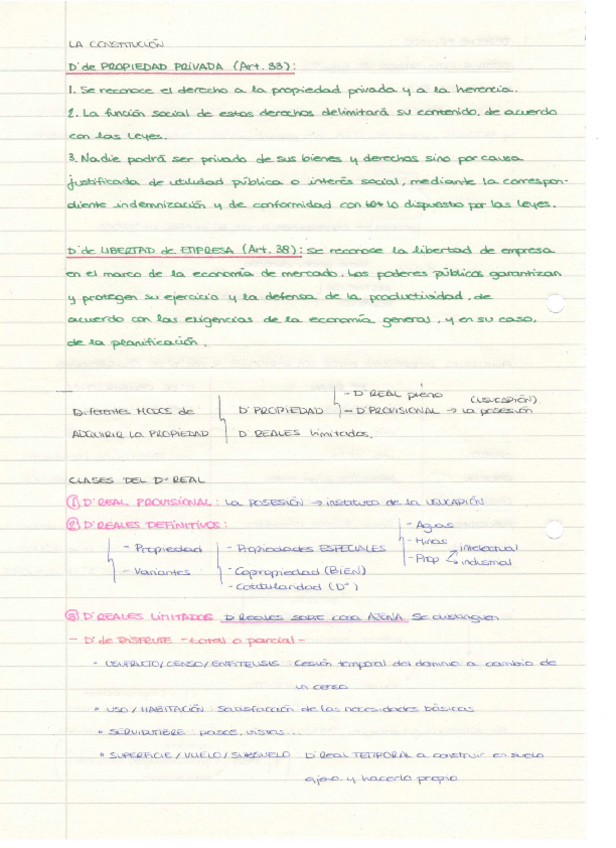 LA CONSTITUCIÓN
Dº de PROPIEDAD PRIVADA (Art. 33):
1. Se reconoce el derecho a la propiedad privada y a la herencia.
2. La función social de estos derechos delimitará su contenido, de acuerdo
con las Leyes.
3. Nadie podrá ser privado de sus bienes y derechos sino por causa
justificada de utilidad pública o interés social, mediante la correspon-
diente indemnización y de conformidad con lo dispuesto por las Leyes.
Dº de LIBERTAD de EMPRESA (Art. 38): Se reconoce la libertad de empresa
en el marco de la economía de mercado. Los poderes públicos garantizan
y protegen su ejercicio y la defensa de la productividad, de
acuerdo con las exigencias de la economía general, y en su caso,
de la planificación.
- Dº REAL pleno (USUCAPIÓN)
Diferentes MODOS de Dº PROPIEDAD - Dº PROVISIONAL → La posesión
ADQUIRIR LA PROPIEDAD Dº REALES limitados.
CLASES DEL Dº REAL
① Dº REAL PROVISIONAL: La POSESIÓN → instituto de la USUCAPIÓN
② Dº REALES DEFINITIVOS: - Aguas
- Minas
- Propiedad - Propiedades ESPECIALES - Prop intelectual
industrial
- Variantes - Copropiedad (BIEN)
- Cotitularidad (Dº)
③ Dº REALES LIMITADOS Dº Reales sobre cosa AJENA. Se distinguen
- Dº de DISFRUTE - total o parcial -
• USUFRUCTO/CENSO/ENFITEUSIS: Cesión temporal del dominio a cambio de
un censo
• USO / HABITACIÓN: Satisfacción de las necesidades básicas
• SERVIDUMBRE: pasos, vistas...
• SUPERFICIE/VUELO/SUBSUELO Dº Real TEMPORAL a construir en suelo
ajeno y hacerlo propio